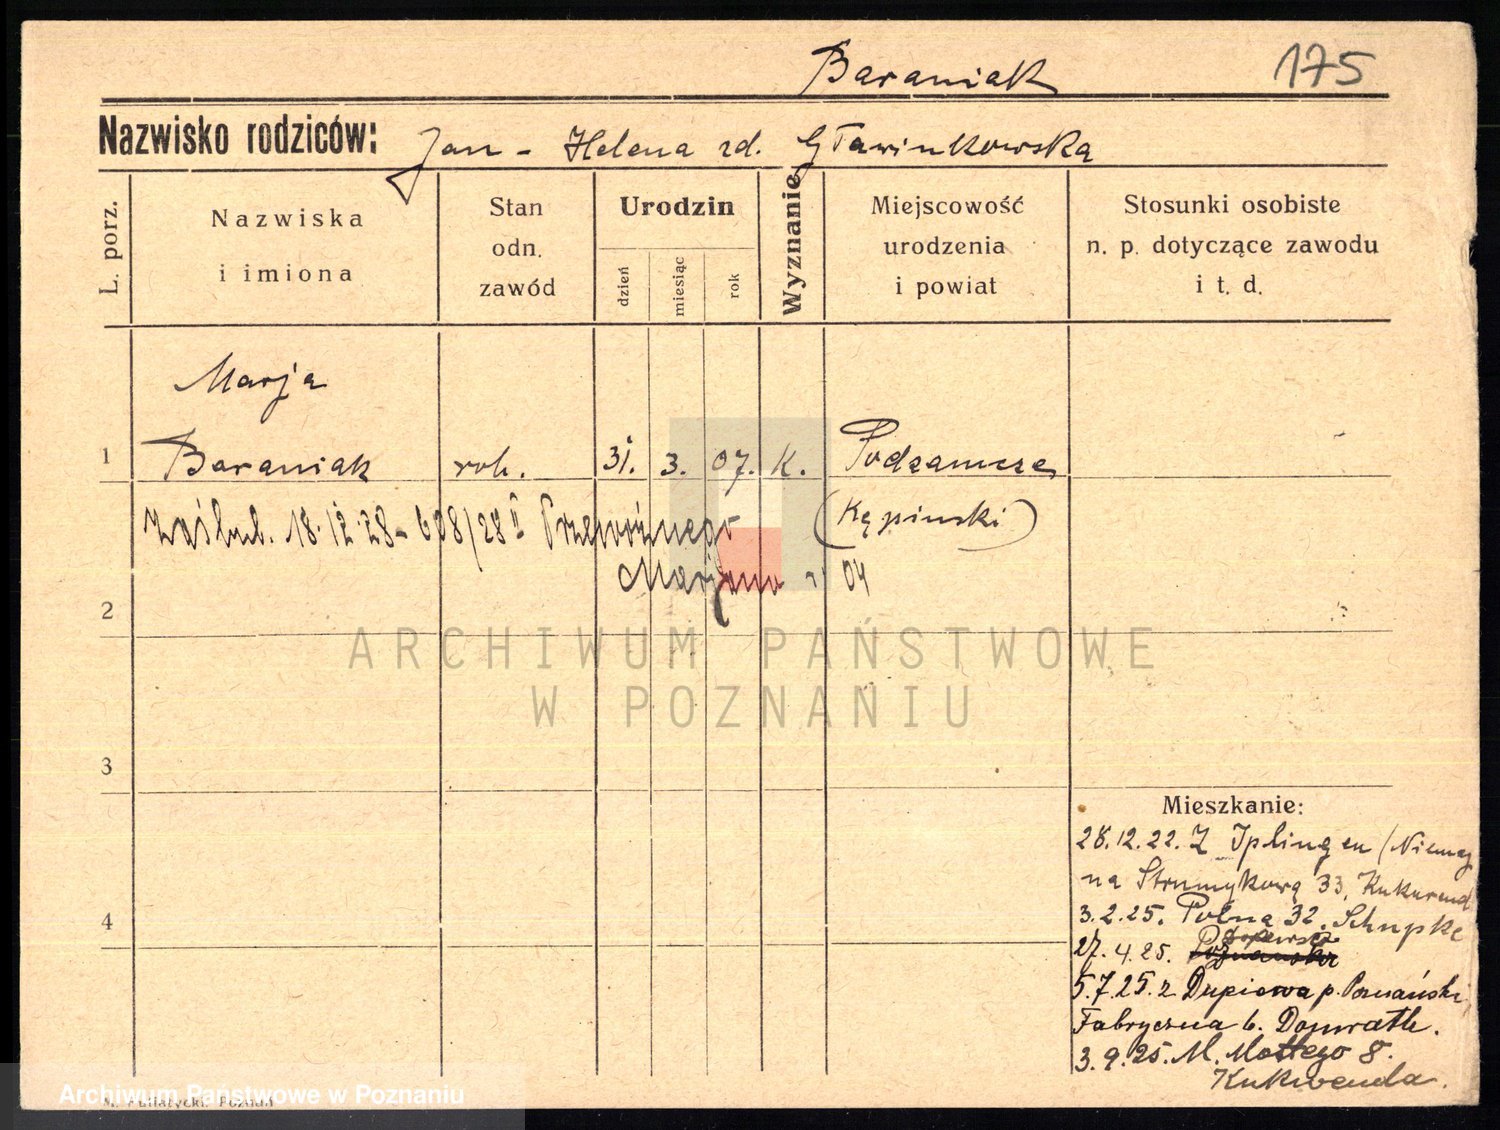 Baraniak 175
Nazwisko rodziców: Jan - Helena zd. Gławinkowska
L. porz.
Nazwiska
i imiona
Stan
odn.
zawód
Urodzin
dzień
miesiąc
rok
Wyznanie
Miejscowość
urodzenia
i powiat
Stosunki osobiste
n. p. dotyczące zawodu
i t. d.
Marja
1 Baraniak rob. 31. 3. 07. K. Podzamcze
(Kępiński)
Zaślub. 18.12.28 - 608/28 II Przewoźnego
Marjana 04
2
ARCHIWUM PAŃSTWOWE
W POZNANIU
3
4
Mieszkanie:
28.12.22. Z (Niemcy
na Strumykową 33,
3.2.25. Polna 32. Schupke
27.4.25. Poznańska
5.7.25. z Dupiewa p. Poznański
Fabryczna 6. Domrath.
3.9.25. M. Mottego 8.
Kukwenda.
Archiwum Państwowe w Poznaniu
M. Putiatycki, Poznań